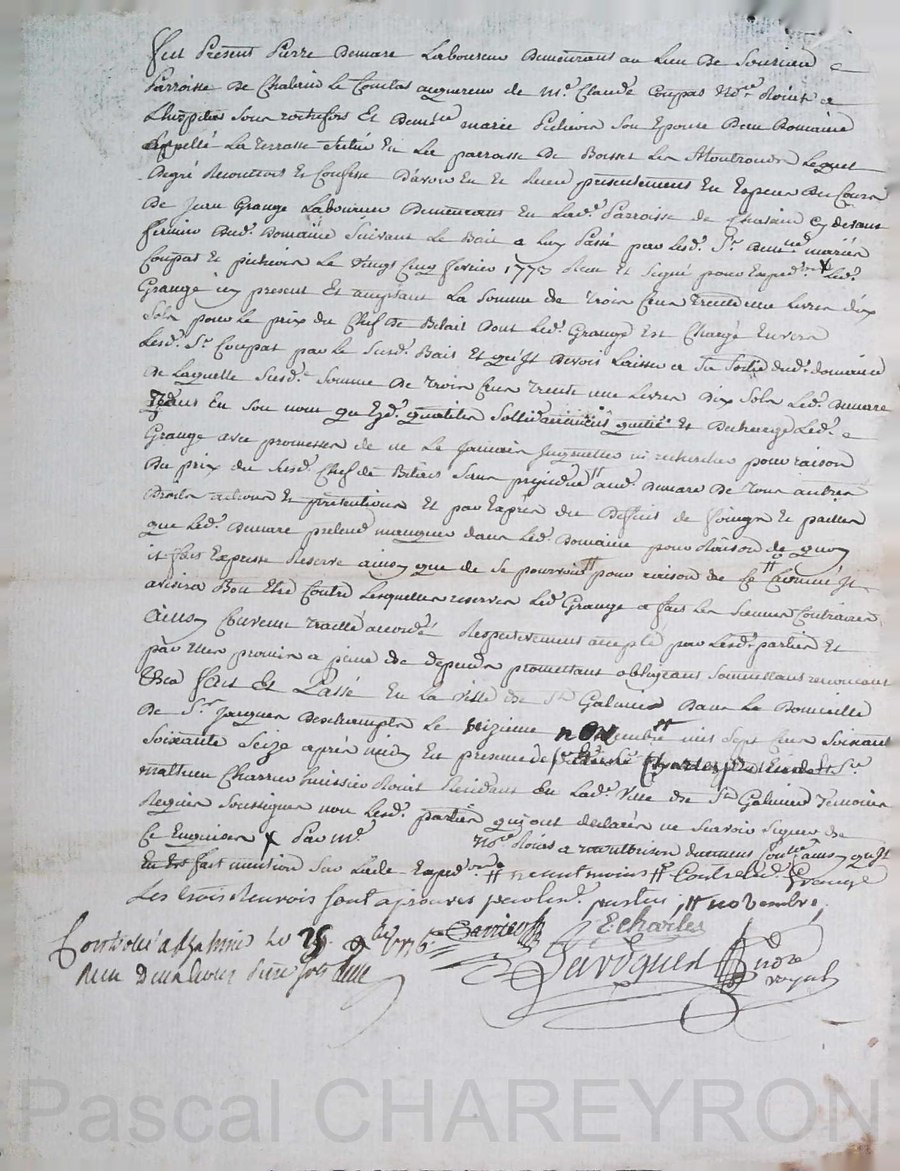 fut Present Pierre Demare Laboureur Demeurant au Lieu De
Parroisse De Chalain le Comtal acquereur de Me. Claude Coupat Nore. Roial a
Lhopital sous rochefort Et Demlle marie Pichovin Son Epouse Dun Domaine
appellé La terrasse Situé En La parroisse De Boisset Les Montrond Lequel
Degré Reconnois Et Confesse D'avoir Eu Et Receu presentement En Especes Du Cours
De Jean Grange Laboureur Demeurant En Lade. Parroisse de Chalain Cy devant
fermier Dud. Domaine Suivant Le Bail a Luy Passé par Lesd. Sr. Demlle mariés
Coupat Et pichovin Le Vingt Cinq fevrier 1773 Recu Et Signé pour Expedon. X Led.
Grange icy present Et aceptant La Somme de Trois Cent trente une Livres dix
Sols pour Le prix du Chef De Betail Dont Led. Grange Est Chargé Envers
Lesd. Sr. Coupat par Le Susd. Bail Et qu'il Devoit Laisser a Sa Sortie dud. domaine
De Laquelle Susd. Somme De Trois Cent Trente une Livres Dix Sols Led. Demare
En Son nom qu Esd. qualités Sollidairement quitté Et Decharge Led.
Grange avec promesses de ne Le Jamais Inquietter ni rechercher pour raison
Du prix du Susd. Chef de Betail Sans prejudice # aud. Demare De Tous autres
Droits actions Et pretentions Et par Exprès du Deficit de foings Et pailles
que Led. Demare pretend manquer dans Led. Domaine pour Raison de quoy
il fait Expresse Reserve ainsy que de Se pourvoir # pour raison de Ce Comme Il
avisera Bon Etre Contre Lesquelles reserves Led. Grange a fait Les Siennes Contraires
ainsy Convenu traitté accordé Respectivement accepté par Lesd. parties Et
par Eux promis a peine de depends promettant obligeant Soumettant renoncant
fait Et Passé En La Ville de St Galmier Dans Le Domicille
De Sr. Jacques Deschamps Le Seizieme novembre # mil Sept Cent Soixante
Soixante Seize après midy En presence de Charles Et Sr.
mathieu Charrin huissier Roial Residant En Lade. Ville de St Galmier Temoins
Requis Soussignés non Lesd. parties qui ont declarés ne Scavoir Signer de
Ce Enquises X Par Me. Nore. Roial a montbrison duement Contle. ainsy qu'Il
En Est fait mention Sur Lade Expedon. # neantmoins # Contre Led. Grange
Les trois Renvois Sont aprouvés par Lesd. parties, # novembre.
Controlé a St Galmier Le 25 9bre 1776
E. Charles
nore
royal
Pascal CHAREYRON